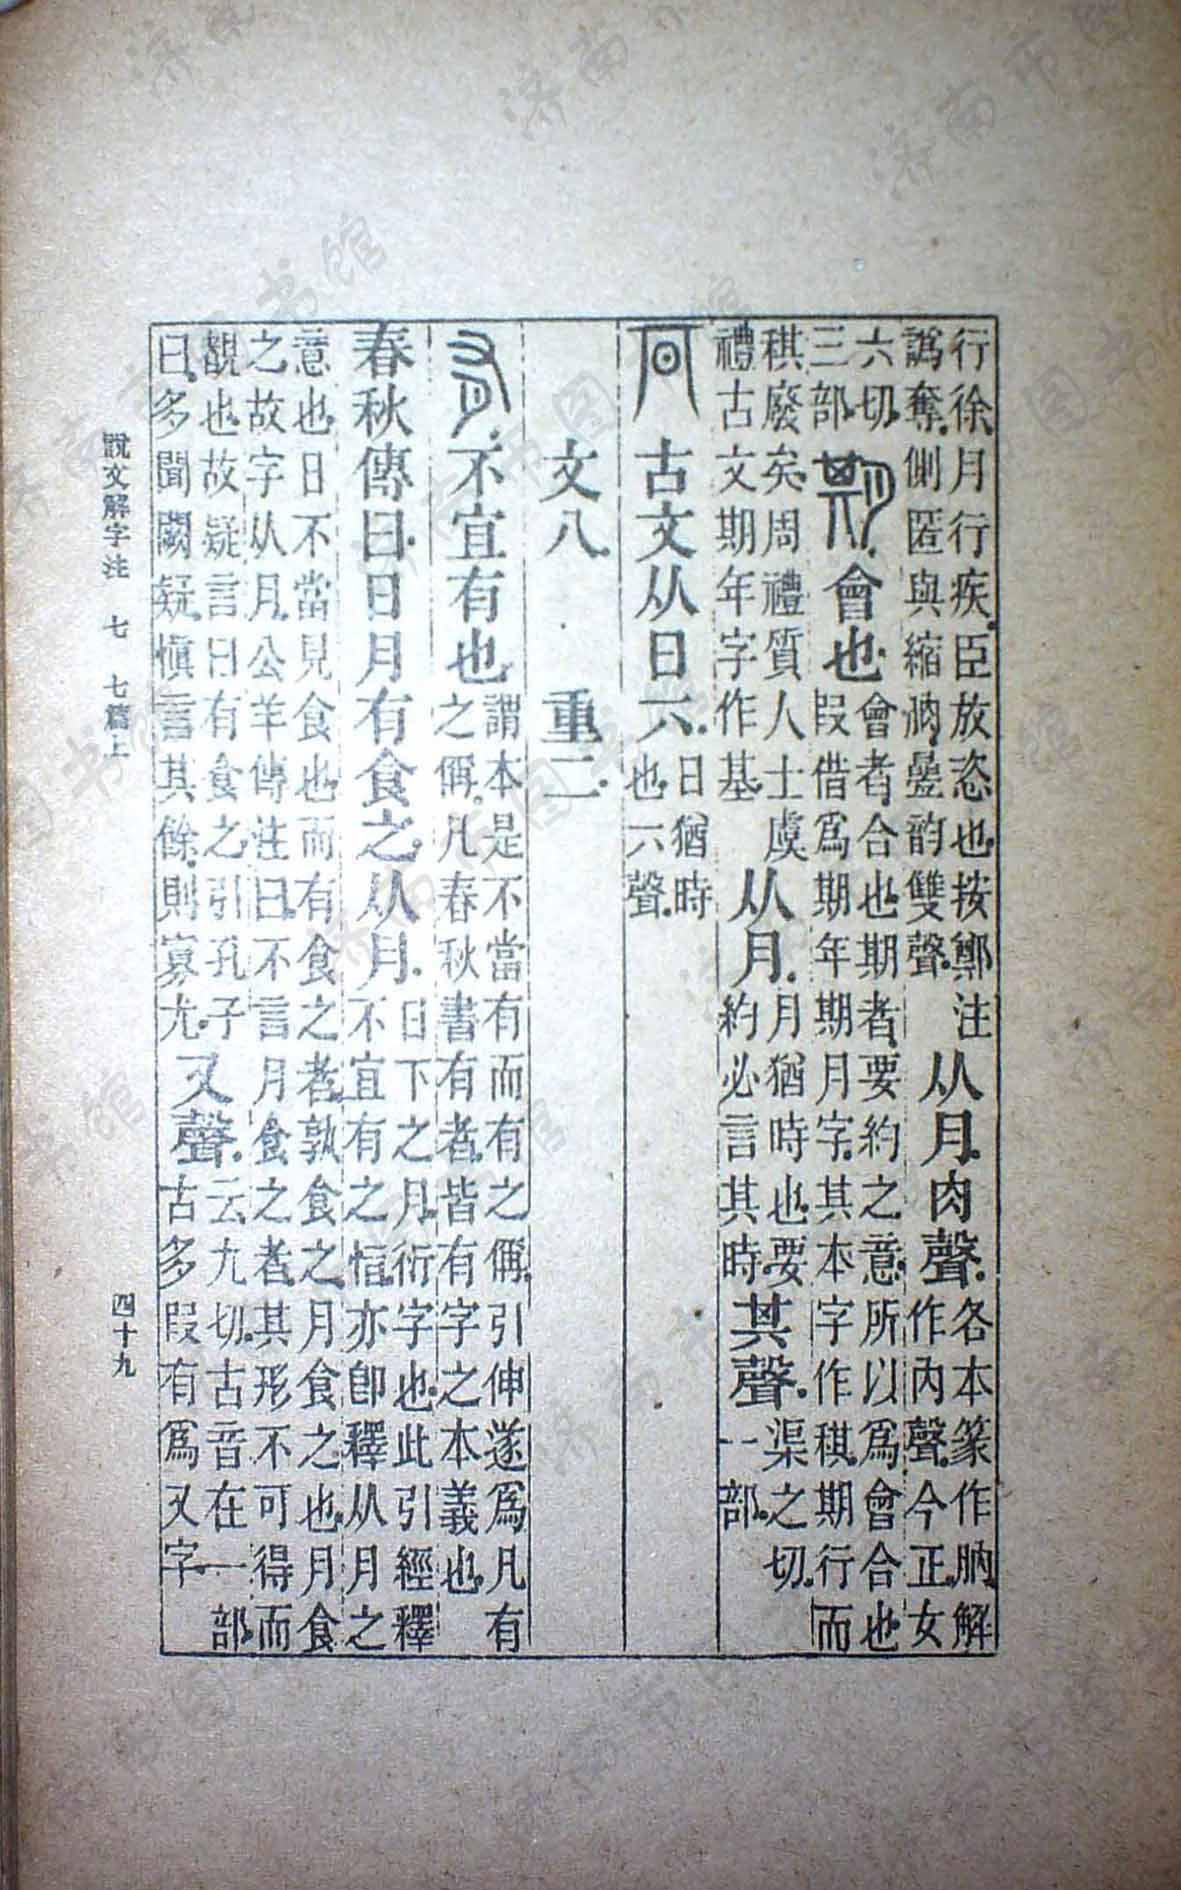 行徐。月行疾。臣放恣也。按鄭注
譌奪。側匿與縮朒曡韵雙聲。
从月。肉聲。
各本篆作朒。解
作內聲。今正。女
六切。
三部。
會也。
會者。合也。期者。要約之意。所以爲會合也。
叚借爲期年期月字。其本字作稘。期行而
稘廢矣。周禮質人士虞
禮古文期年字作基。
从月。
月猶時也。要
約必言其時。
其聲。
渠之切。
一部。
古文从日六。
日猶時
也。六聲。
文八 重二
不宜有也。
謂本是不當有而有之偁。引伸遂爲凡有
之偁。凡春秋書有者。皆有字之本義也。
春秋傳曰。日月有食之。从月。
日下之月。衍字也。此引經釋
不宜有之恉。亦卽釋从月之
意也。日不當見食也。而有食之者。孰食之。月食之也。月食
之。故字从月。公羊傳注曰。不言月食之者。其形不可得而
覩也。故疑言日有食之。引孔子
曰。多聞闕疑。愼言其餘。則寡尤。
又聲。
云九切。古音在一部。
古多叚有爲又字。
說文解字注 七 七篇上
四十九